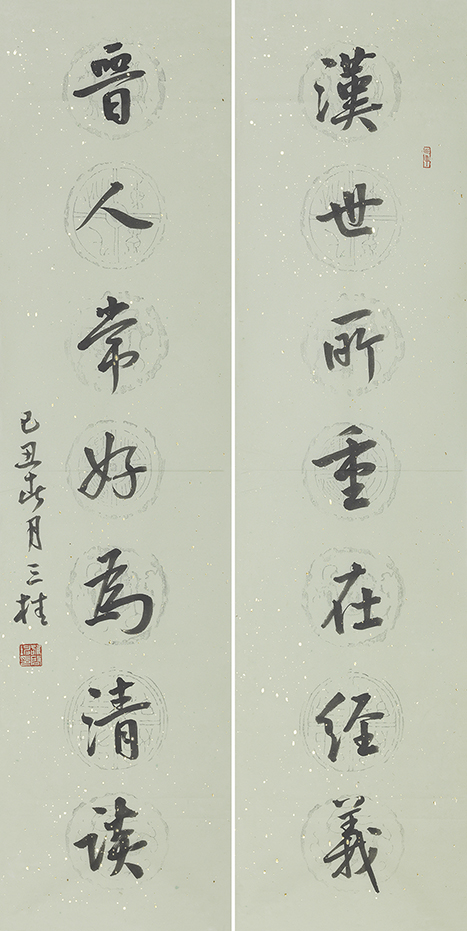 漢世所重在经義
晋人常好為清談
己丑春月三桂